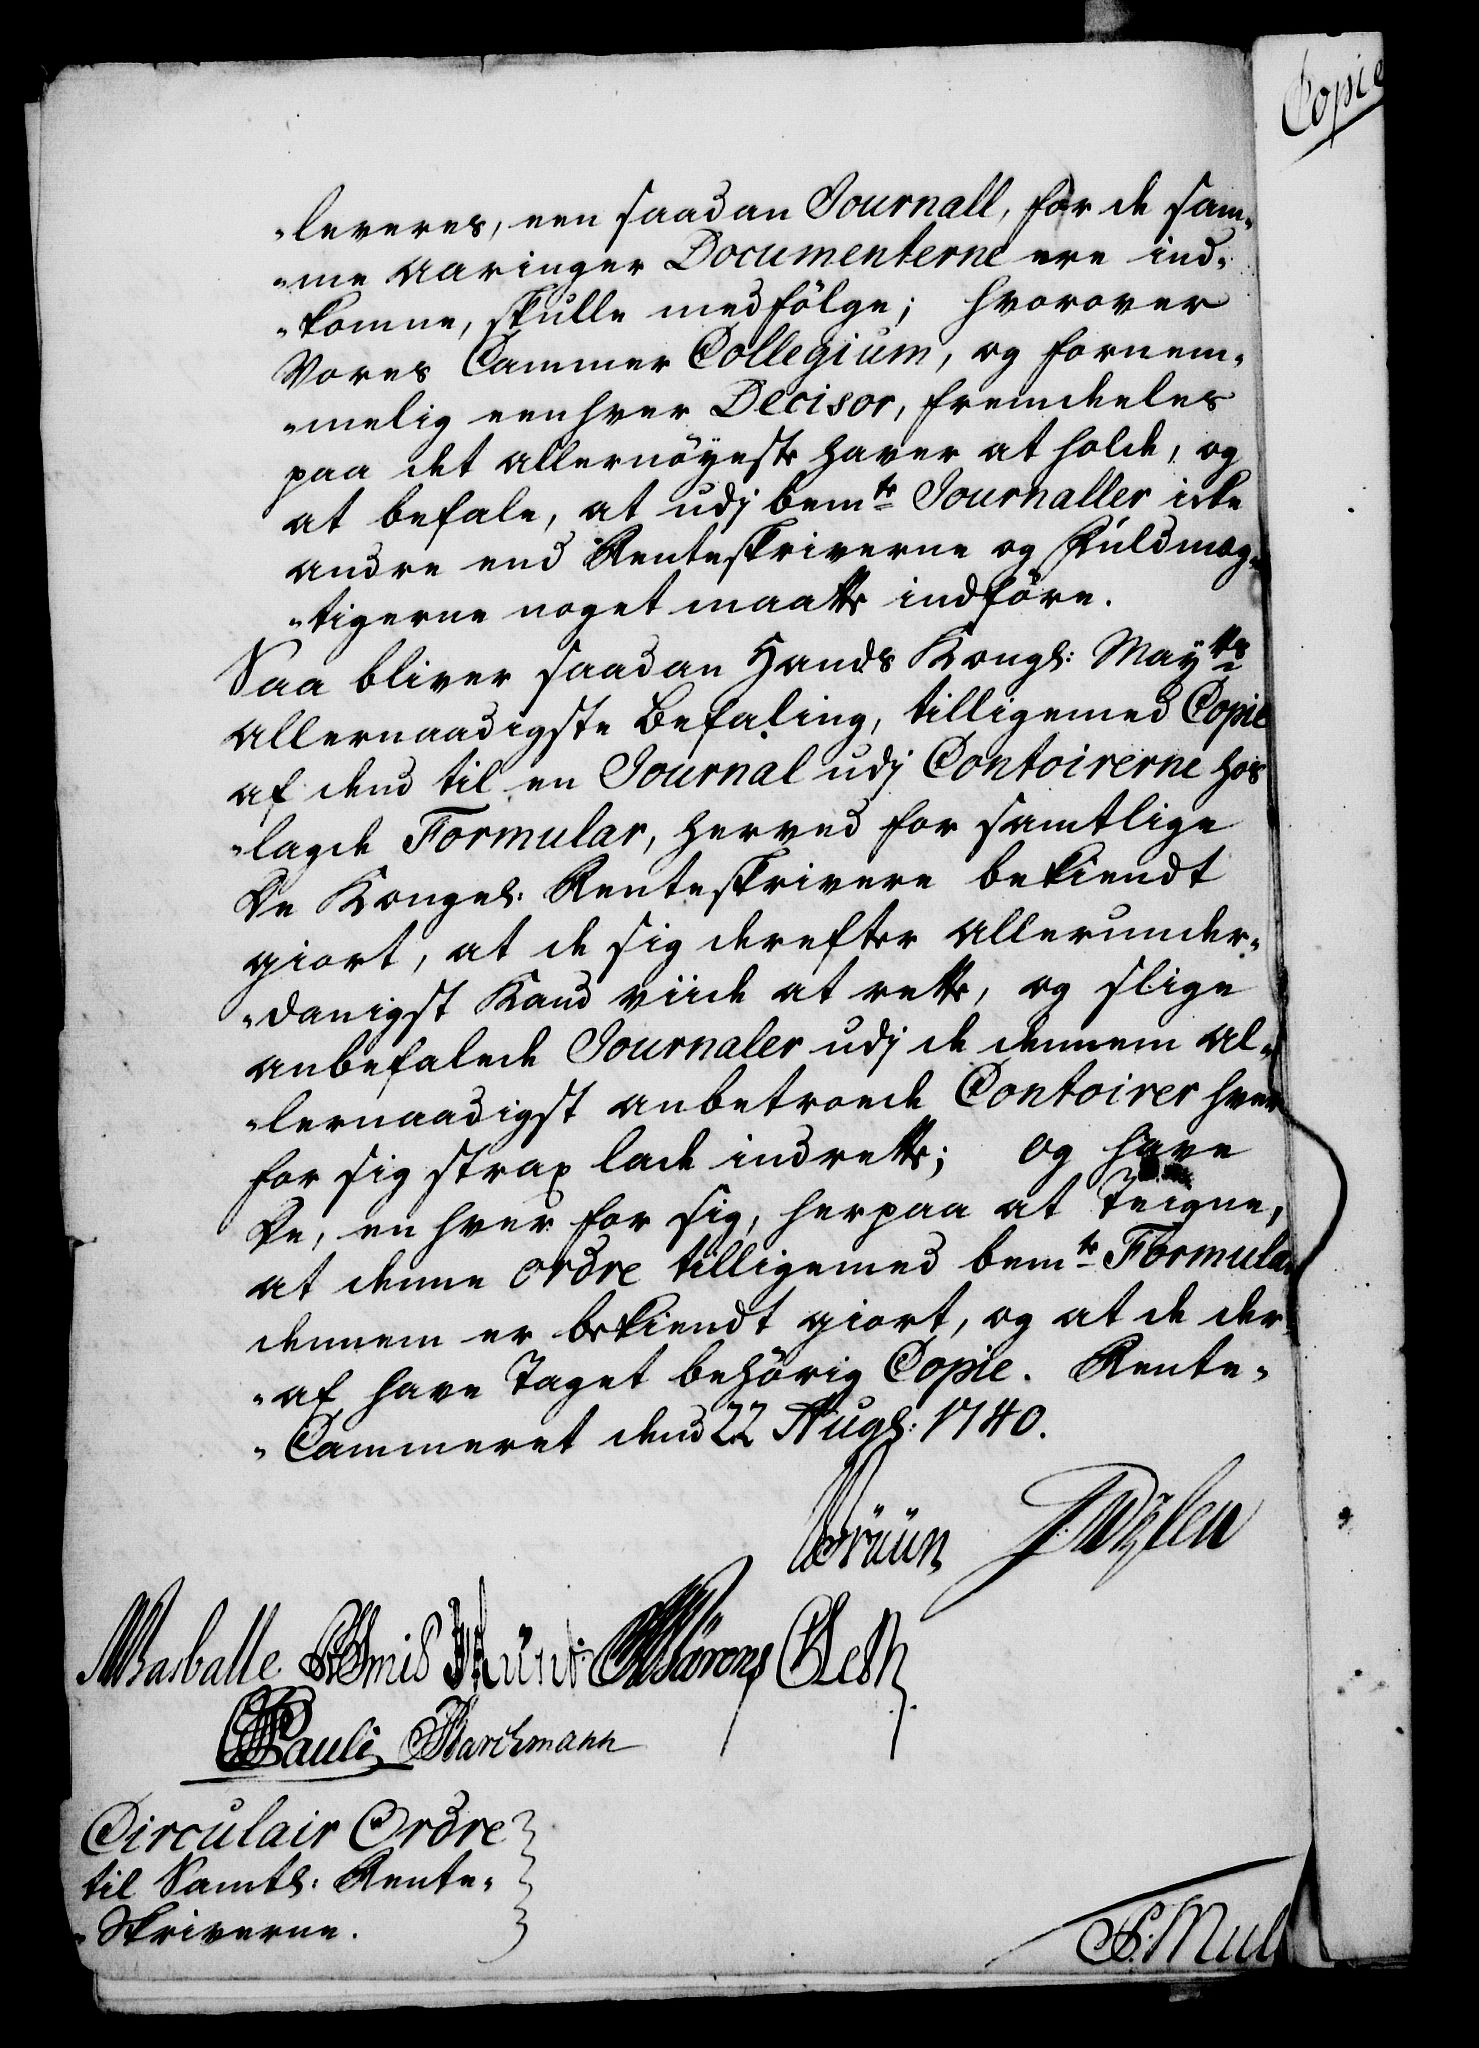 Copie
"leveres, een saadan Journall, for de sam-
"me aaringer Documenterne ere ind-
"komne, skulle medfölge; hvorover
Vores Cammer Collegium, og fornem-
"melig eenhver Decisor, fremdeeles
paa det allernöyeste haver at holde, og
at befale, at udj bemte Journaller icke
andre end Renteskriverne og Fuldmæg-
"tigerne noget maatte indföre.
Saa bliver saadan Hands Kongl: Mayts
allernaadigste Befaling, tilligemed Copie
af dend til en Journal udj Contoirerne hos
"lagde Formular, herved for samtlige
De Kongel: Renteskrivere bekiendt
giort, at de sig derefter allerunder-
"danigst Kand viide at rette, og slige
anbefalede Journaler udj de dennem al-
"lernaadigst anbetroede Contoirer hver
for sig strax lade indrette; og have
De, en hver for sig, herpaa at Teigne,
at denne Ordre tilligemed bemte Formular
dennem er bekiendt giort, og at de der
"af have Taget behörig Copie. Rente-
"Cammeret dend 22 Augl: 1740.
Brüün
Pauli Marchmann
Circulair Ordre
til Samtl: Rente-
"Skriverne.